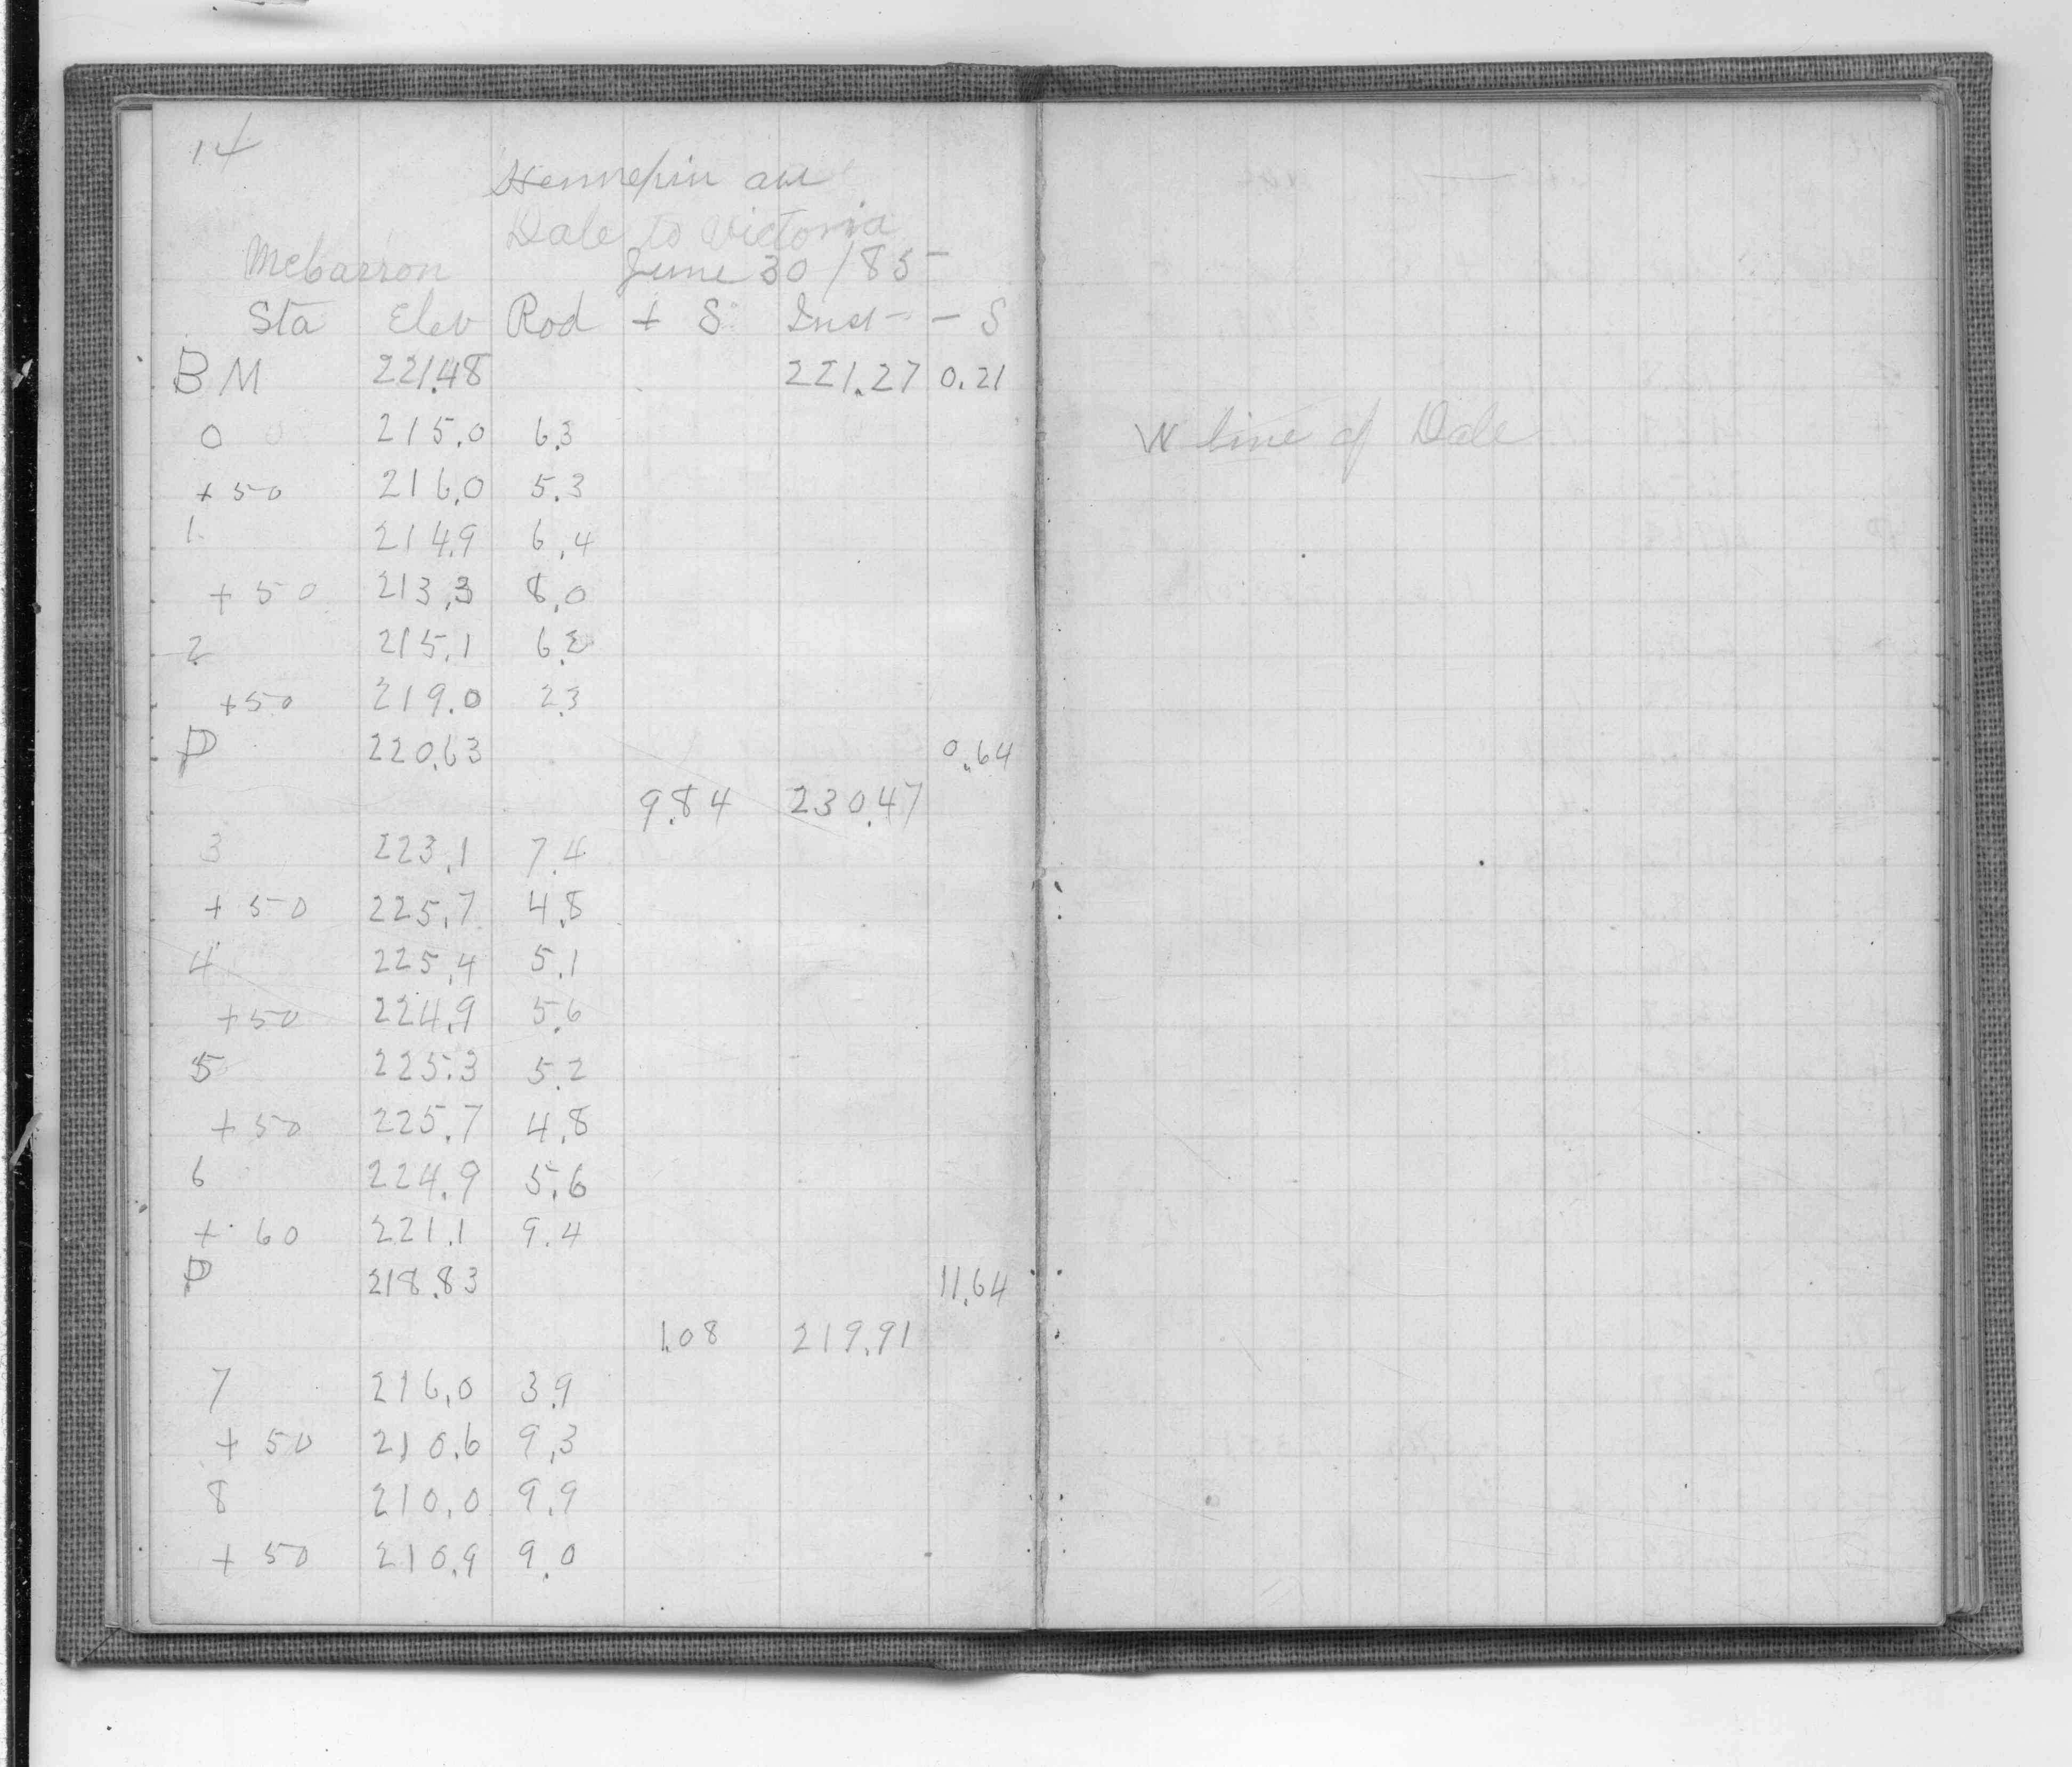 14
Hennepin ave
Dale to Victoria
McCarron June 30/85
Sta Elev Rod + S Inst - S
BM 221.48 221.27 0.21
0 215.0 6.3
+50 216.0 5.3
1 214.9 6.4
+50 213.3 8.0
2 215.1 6.2
+50 219.0 2.3
P 220.63 0.64
9.84 230.47
3 223.1 7.4
+50 225.7 4.8
4 225.4 5.1
+50 224.9 5.6
5 225.3 5.2
+50 225.7 4.8
6 224.9 5.6
+60 221.1 9.4
P 218.83 11.64
1.08 219.91
7 216.0 3.9
+50 210.6 9.3
8 210.0 9.9
+50 210.9 9.0
W line of Dale